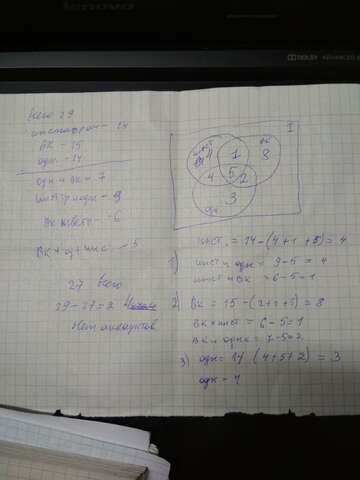 Всего 29
инстаграм - 14
ВК - 15
одн - 14
одн и ВК = 7
инст и одн = 9
ВК и инст - 6
ВК + од + инс - 5
27 всего
29 - 27 = 2
Нет аккаунтов
I
инст
ВК
4
1
8
4
5
2
3
одн
инст = 14 - (4 + 1 + 5) = 4
1)
инст и одн = 9 - 5 = 4
инст и ВК = 6 - 5 = 1
2) ВК = 15 - (2 + 1 + 5) = 8
ВК и инс = 6 - 5 = 1
ВК и одн = 7 - 5 = 2
3) одн = 14 (4 + 5 + 2) = 3
одн - 4
DOLBY
ADVANCED